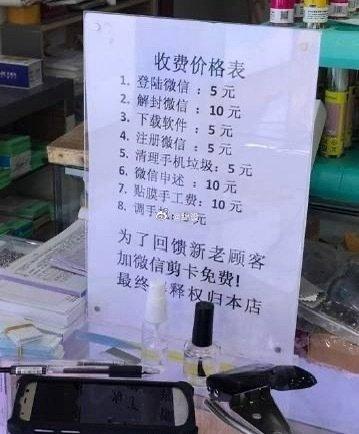 收费价格表
1、登陆微信：5 元
2、解封微信：10 元
3、下载软件：5 元
4、注册微信：5 元
5、清理手机垃圾：5 元
6、微信申述：10 元
7、贴膜手工费：10 元
8、调手 元
为了回馈新老顾客
加微信剪卡免费！
最终 释权归本店